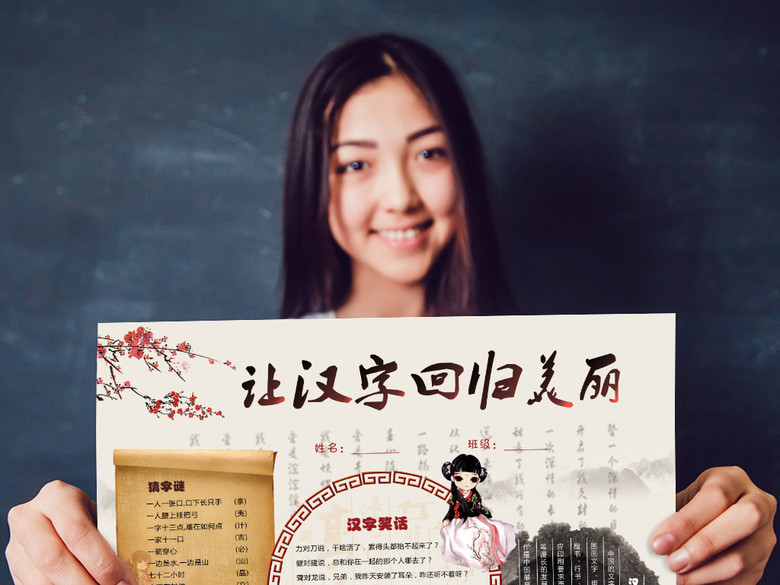 让汉字回归美丽
姓名:
班级:
猜字谜
一人一张口,口下长只手 (拿)
一人腰上挂把弓 (夷)
一字十三点,难在如何点 (汁)
一家十一口 (吉)
一箭穿心 (必)
一边是水,一边是山 (汕)
七十二小时 (晶)
汉字笑话
力对刀说,干啥活了,累得头都抬不起来了?
健对建说,总和你在一起的那个人哪去了?
聋对龙说,兄弟,我昨天安装了耳朵,咋还听不着呀?
汉
中国的文字
图画文字
楷书、行书
应印刷要求
等漫长的发
作是中国最